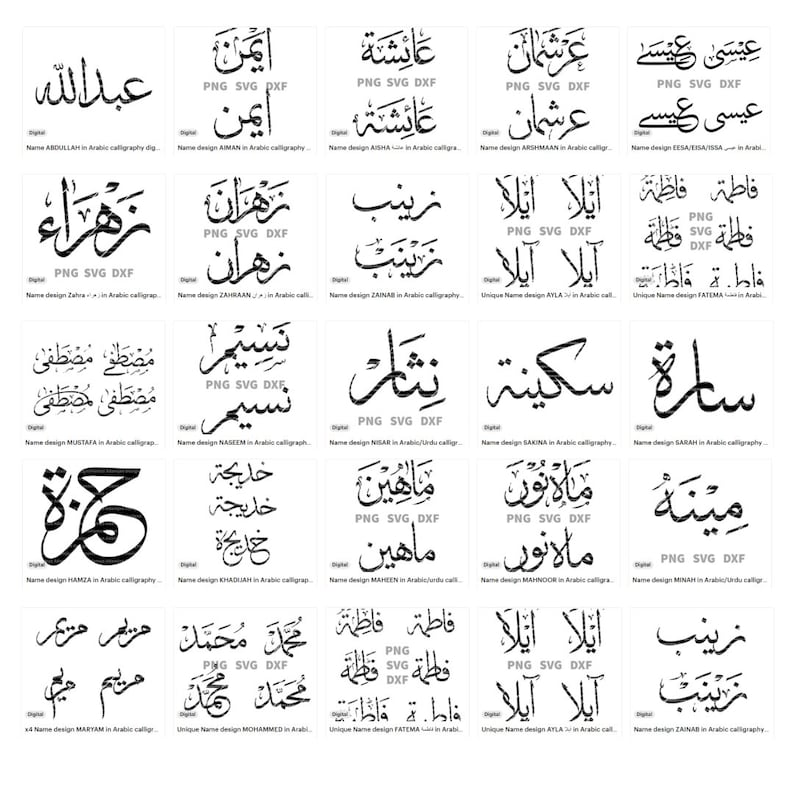 عبدالله
Digital
Name ABDULLAH in Arabic calligraphy dig...
أيمن
PNG SVG DXF
أيمن
Digital
Name design AIMAN in Arabic calligraphy ...
عَائِشَة
PNG SVG DXF
عَائِشَة
Digital
Name design AISHA عائشة in Arabic calligra...
عرشمان
PNG SVG DXF
عرشمان
Digital
Name design ARSHMAAN in Arabic callig...
عيسى عِيسَى
PNG SVG DXF
عيسى عيسى
Digital
Name design EESA/EISA/ISSA عيسى in Arabi...
زَهْرَاء
PNG SVG DXF
Digital
Name design Zahra زهراء in Arabic calligrap...
زَهْرَان
PNG SVG DXF
زهران
Digital
Name design ZAHRAAN زهران in Arabic calli...
زينب
زَيْنَبْ
Digital
Name design ZAINAB in Arabic calligraphy...
أيْلَا أيْلَا
PNG SVG DXF
آيلا آيلا
Digital
Unique Name design AYLA آيلا in Arabic call...
فاطِمَة فاطمة
PNG
SVG
DXF
فاطمة فاطمة
فاطمة فاطمة
Digital
Unique Name design FATEMA فاطمة in Arab...
مُصْطَفى مُصْطَفى
مُصْطَفى مُصْطَفى
Digital
Name design MUSTAFA in Arabic calligrap...
نَسِيْم
PNG SVG DXF
نسيم
Digital
Name design NASEEM in Arabic calligraph...
نِثَار
PNG SVG DXF
Digital
Name design NISAR in Arabic/Urdu calligr...
سكينة
Digital
Name design SAKINA in Arabic calligraphy...
سارة
Digital
Name design SARAH in Arabic calligraphy...
حمزة
Digital
Name design HAMZA in Arabic calligraphy ...
خديجة
خديجة
خديجة
Digital
Name design KHADIJAH in Arabic calligrap...
مَاهِيْن
PNG SVG DXF
ماهين
Digital
Name design MAHEEN in Arabic/urdu calli...
مَاهْ نُوْر
PNG SVG DXF
ماه نور
Digital
Name design MAHNOOR in Arabic calligra...
مِيْنَهْ
PNG SVG DXF
Digital
Name design MINAH in Arabic/Urdu calligr...
مريم مريم
مريم مريم
Digital
x4 Name design MARYAM in Arabic calligr...
مُحَمَّد مُحَمَّد
PNG SVG DXF
مُحَمَّد مُحَمَّد
Digital
Unique Name design MOHAMMED in Arabi...
فاطِمَة فاطمة
PNG
SVG
DXF
فاطمة فاطمة
فاطمة فاطمة
Digital
Unique Name design FATEMA فاطمة in Arab...
أيْلَا أيْلَا
PNG SVG DXF
آيلا آيلا
Digital
Unique Name design AYLA آيلا in Arabic call...
زينب
زَيْنَبْ
Digital
Name design ZAINAB in Arabic calligraphy...